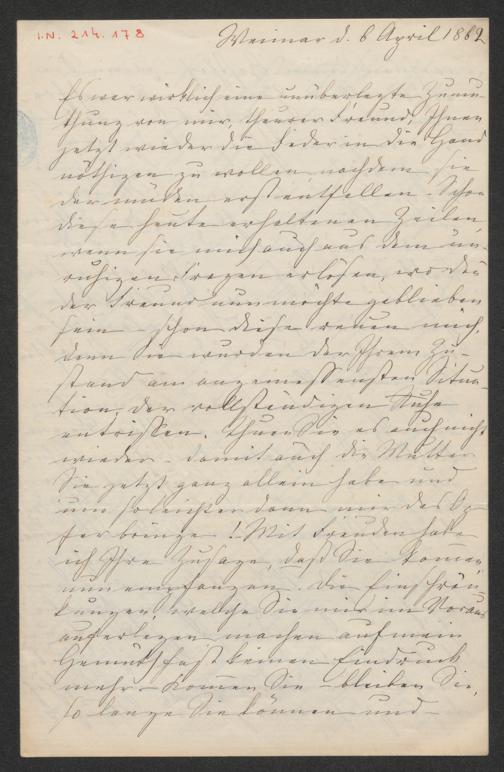 I.N. 214.178
Weimar d. 6 April 1862
Es war wirklich eine unüberlegte Zumu-
thung von mir, theurer Freund, Ihnen
jetzt wieder die Feder in die Hand
nöthigen zu wollen, nachdem sie
der müden erst entfallen – Schon
diese heute erhaltenen Zeilen,
wenn sie mich auch aus dem un-
ruhigen Fragen erlösen, wo denn
der Freund nun möchte geblieben
sein – schon diese reuen mich,
denn Sie wurden der Ihrem Zu-
stand am angemessensten Situa-
tion, der vollständigen Ruhe
entrissen. Thuen Sie es auch nicht
wieder – damit auch die Mutter
Sie jetzt ganz allein habe und
um so leichter dann mir das Op-
fer bringe! Mit Freuden habe
ich Ihre Zusage, daß Sie kommen
nun empfangen. Die Einschrän-
kungen, welche Sie mir im Voraus
auferlegen machen auf mein
Gemüth fast keinen Eindruck
mehr – Kommen Sie – bleiben Sie,
so lange Sie können und –